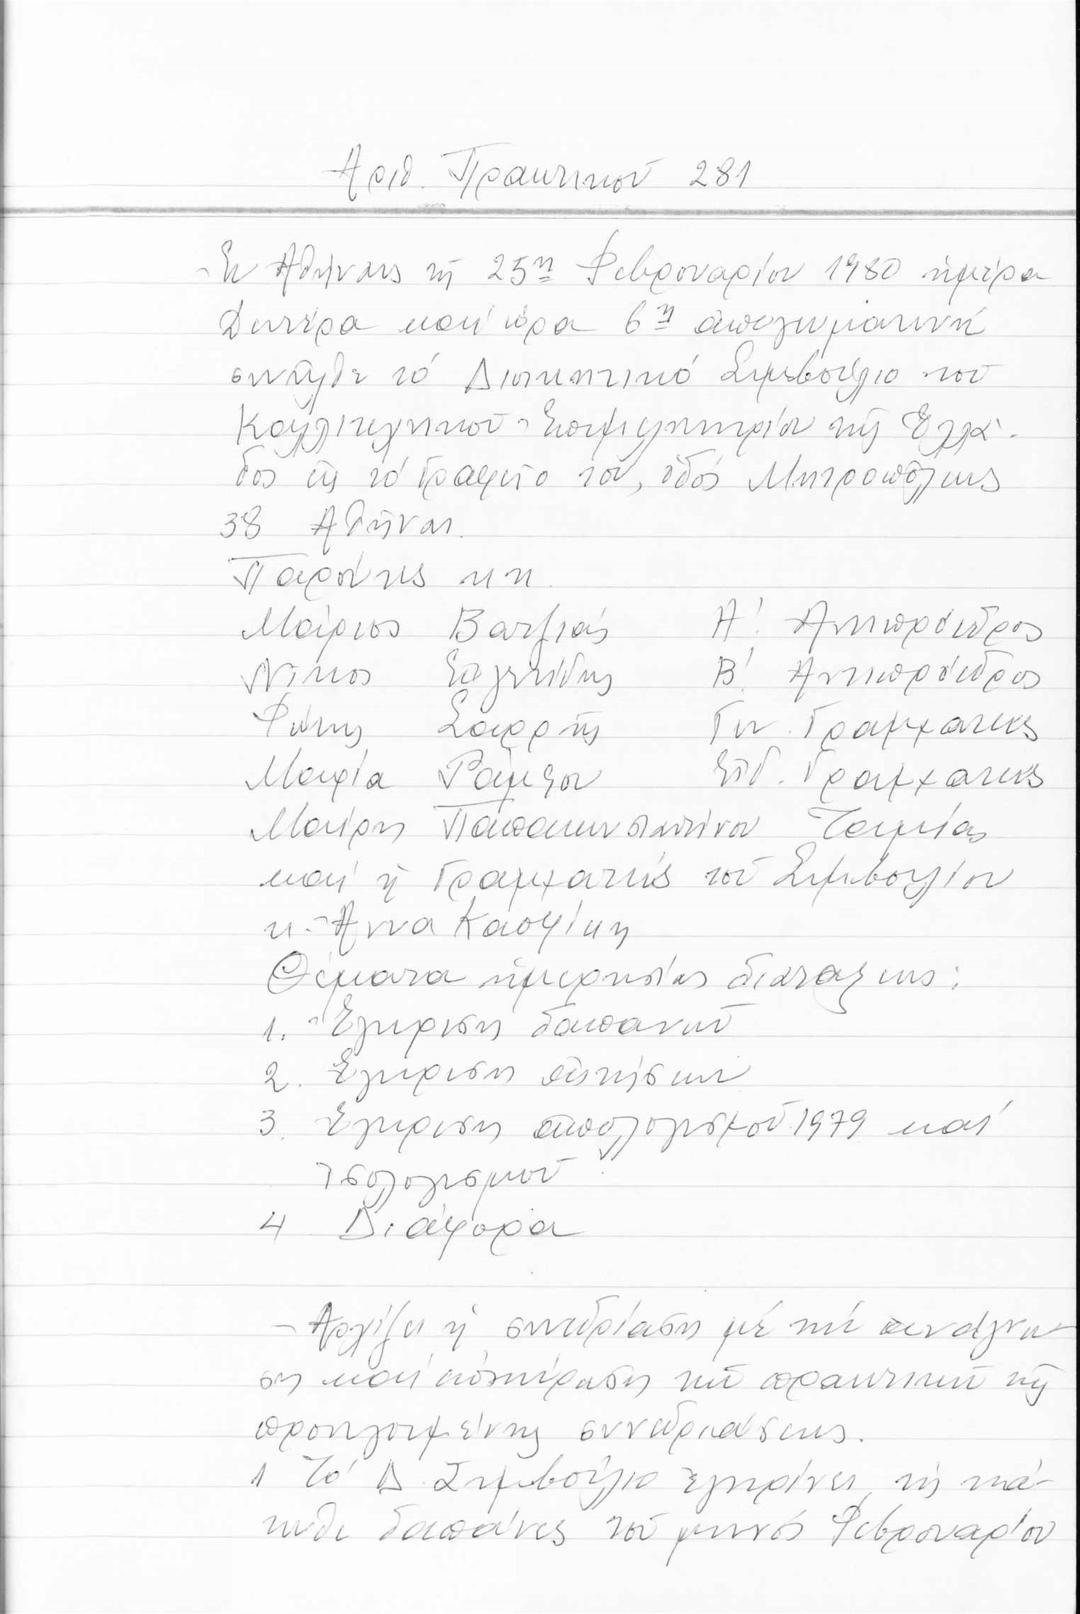 Αριθ. Πρακτικοῦ 281
Ἐν Ἀθήναις τῇ 25ῃ Φεβρουαρίου 1980 ἡμέρα
Δευτέρα καί ὥρα 6η ἀπογευματινή
συνῆλθε τό Διοικητικό Συμβούλιο τοῦ
Καλλιτεχνικοῦ Ἐπιμελητηρίου τῆς Ἑλλά-
δος εἰς τό Γραφεῖο του, ὁδός Μητροπόλεως
38 Ἀθῆναι.
Παρόντες κ.κ.
Μάριος Βατζιάς Α΄. Ἀντιπρόεδρος
Νῖκος Β΄ Ἀντιπρόεδρος
Φώτης Σαρρῆς Γεν. Γραμματεύς
Μαρία Ράμφου Εἰδ. Γραμματεύς
Μαίρη Παπακωνσταντίνου Ταμίας
καί ἡ Γραμματεύς τοῦ Συμβουλίου
κ. Ἄννα
Θέματα ἡμερησίας διατάξεως:
1. Ἔγκριση δαπανῶν
2. Ἔγκριση αἰτήσεων
3. Ἔγκριση ἀπολογισμοῦ 1979 καί
Ἰσολογισμοῦ
4 Διάφορα
Ἀρχίζει ἡ συνεδρίαση μέ τήν ἀνάγνω-
ση καί ἐπικύρωση τῶν πρακτικῶν τῆς
προηγουμένης συνεδριάσεως.
1 Τό Δ. Συμβούλιο ἐγκρίνει τίς κά-
τωθι δαπάνες τοῦ μηνός Φεβρουαρίου